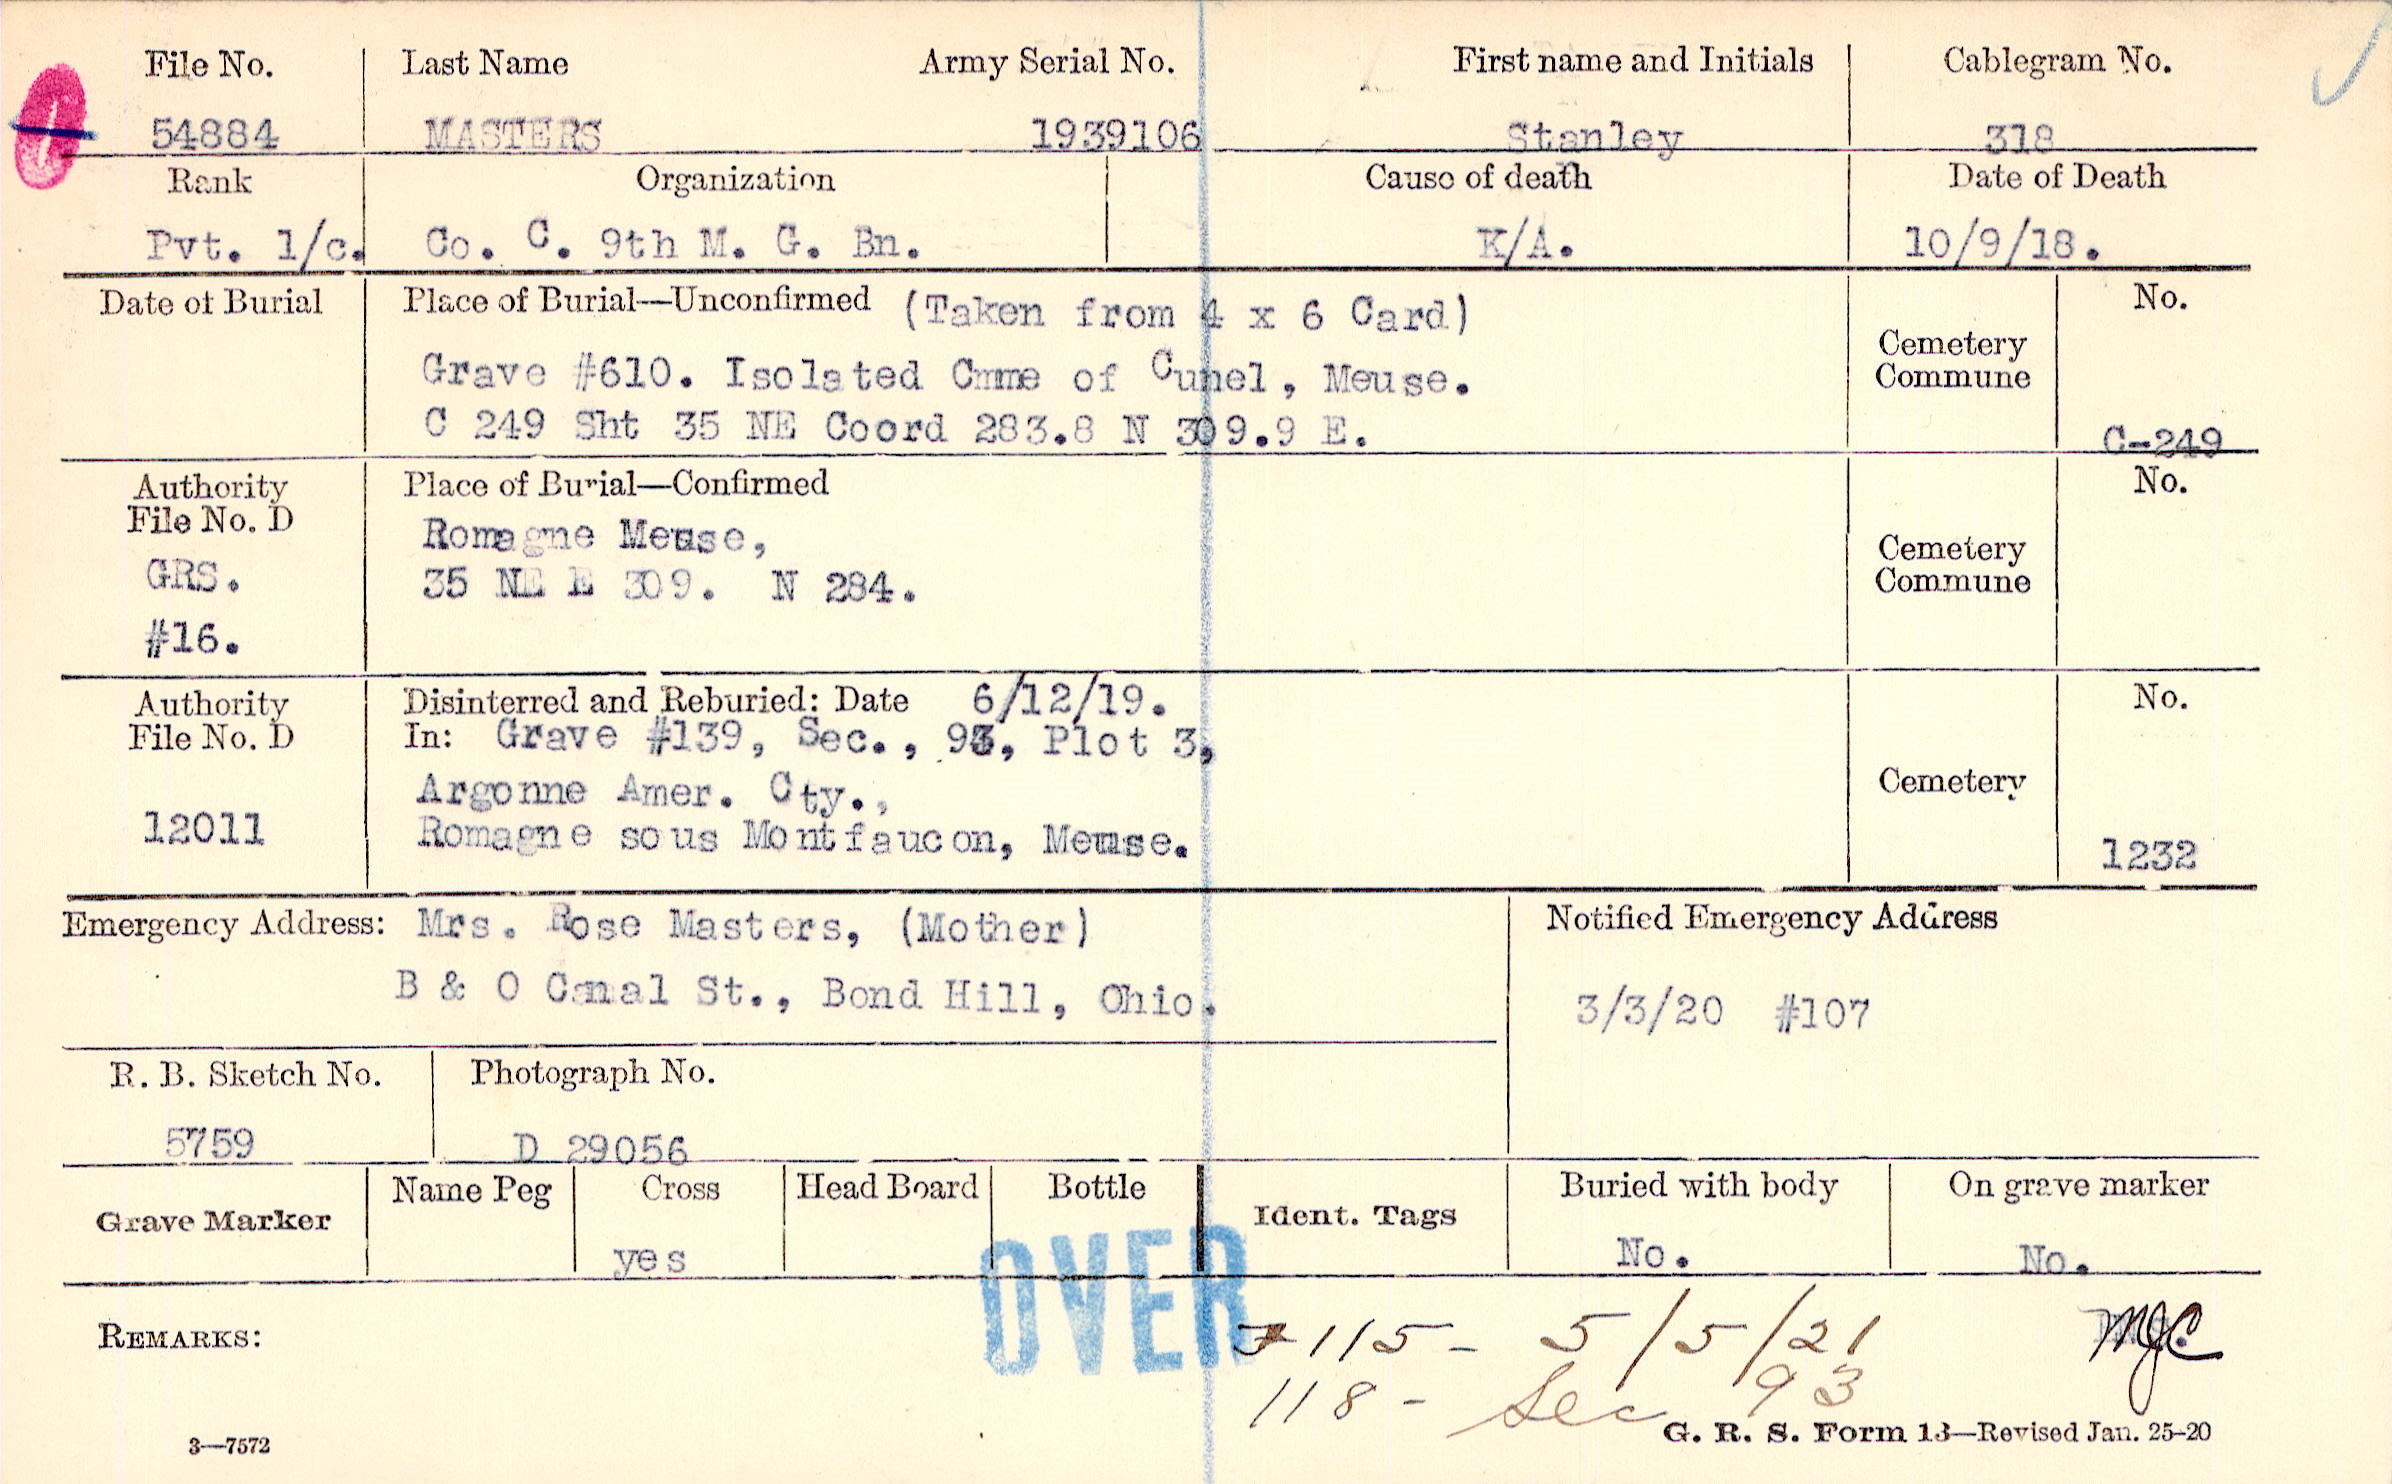 File No. Last Name Army Serial No. First name and Initials Cablegram No.
54884 MASTERS 1939106 Stanley 318
Rank Organization Cause of death Date of Death
Pvt. 1/c. Co. C. 9th M. G. Bn. K/A. 10/9/18.
Date of Burial Place of Burial—Unconfirmed (Taken from 4 x 6 Card) No.
Grave #610. Isolated Cmme of Cunel, Meuse. Cemetery Commune
C 249 Sht 35 NE Coord 283.8 N 309.9 E. C-249
Authority File No. D Place of Burial—Confirmed No.
Romagne Meuse,
GRS. 35 NE E 309. N 284. Cemetery Commune
#16.
Authority File No. D Disinterred and Reburied: Date 6/12/19. No.
In: Grave #139, Sec., 93, Plot 3,
Argonne Amer. Cty., Cemetery
12011 Romagne sous Montfaucon, Meuse. 1232
Emergency Address: Mrs. Rose Masters, (Mother) Notified Emergency Address
B & O Canal St., Bond Hill, Ohio. 3/3/20 #107
R. B. Sketch No. Photograph No.
5759 D 29056
Grave Marker Name Peg Cross Head Board Bottle Ident. Tags Buried with body On grave marker
yes No. No.
OVER
REMARKS: 115 - 5/5/21 MJC
118 - Sec 93
3—7572 G. R. S. Form 13—Revised Jan. 25-20